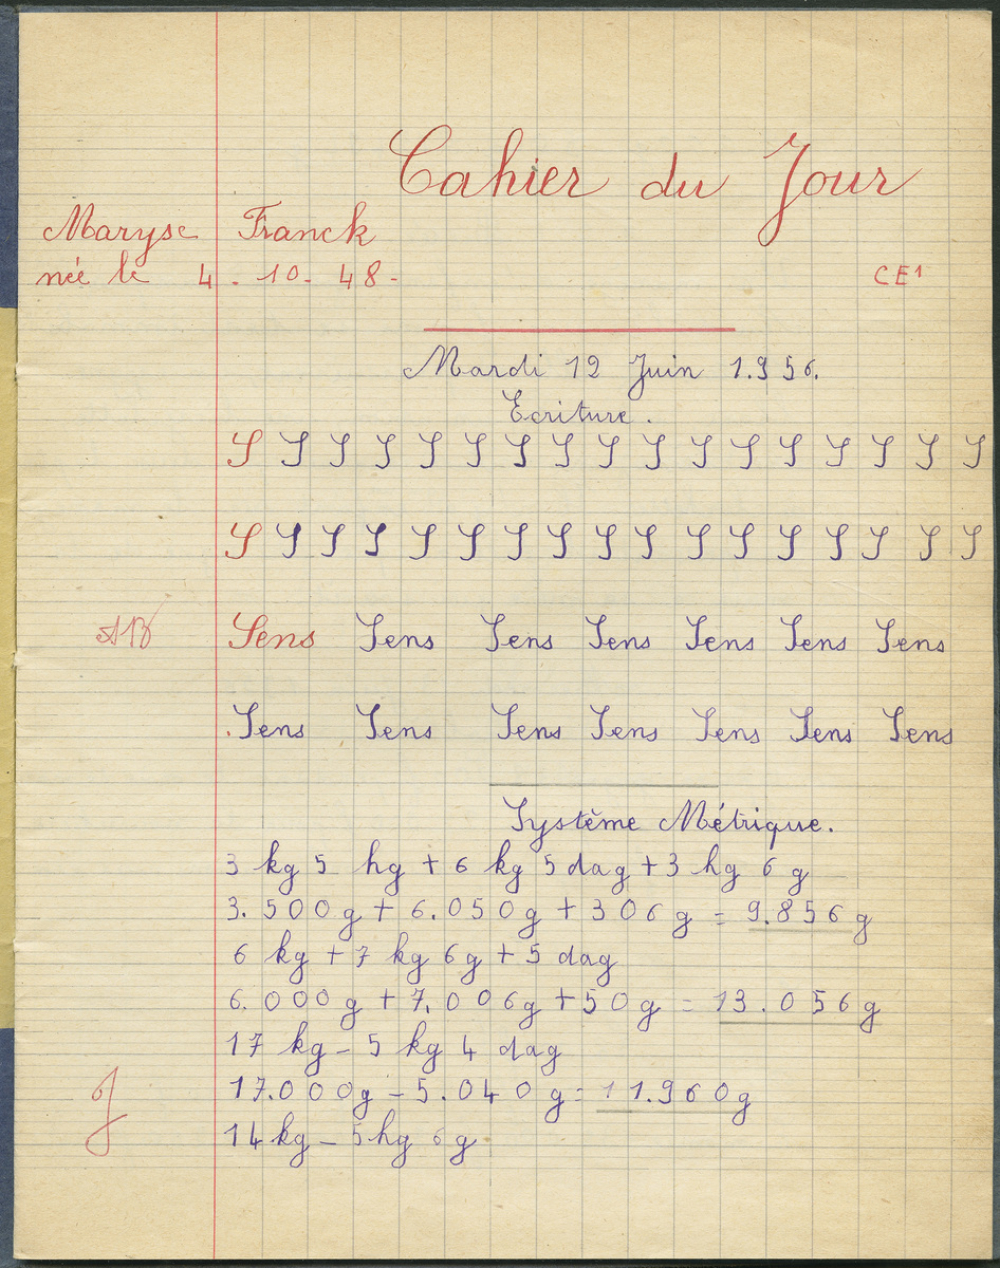 Cahier du Jour
Maryse Franck
née le 4.10.48-
CE1
Mardi 12 Juin 1.956.
Ecriture.
S S S S S S S S S S S S S S S S S
S S S S S S S S S S S S S S S S S
AB Sens Sens Sens Sens Sens Sens Sens
.Sens Sens Sens Sens Sens Sens Sens
Système Métrique.
3 kg 5 hg + 6 kg 5 dag + 3 hg 6 g
3.500g + 6.050g + 306g = 9.856g
6 kg + 7 kg 6g + 5 dag
6.000g + 7.006g + 50g = 13.056g
17 kg - 5 kg 4 dag
17.000g - 5.040g = 11.960g
14 kg - 5 hg 6 g